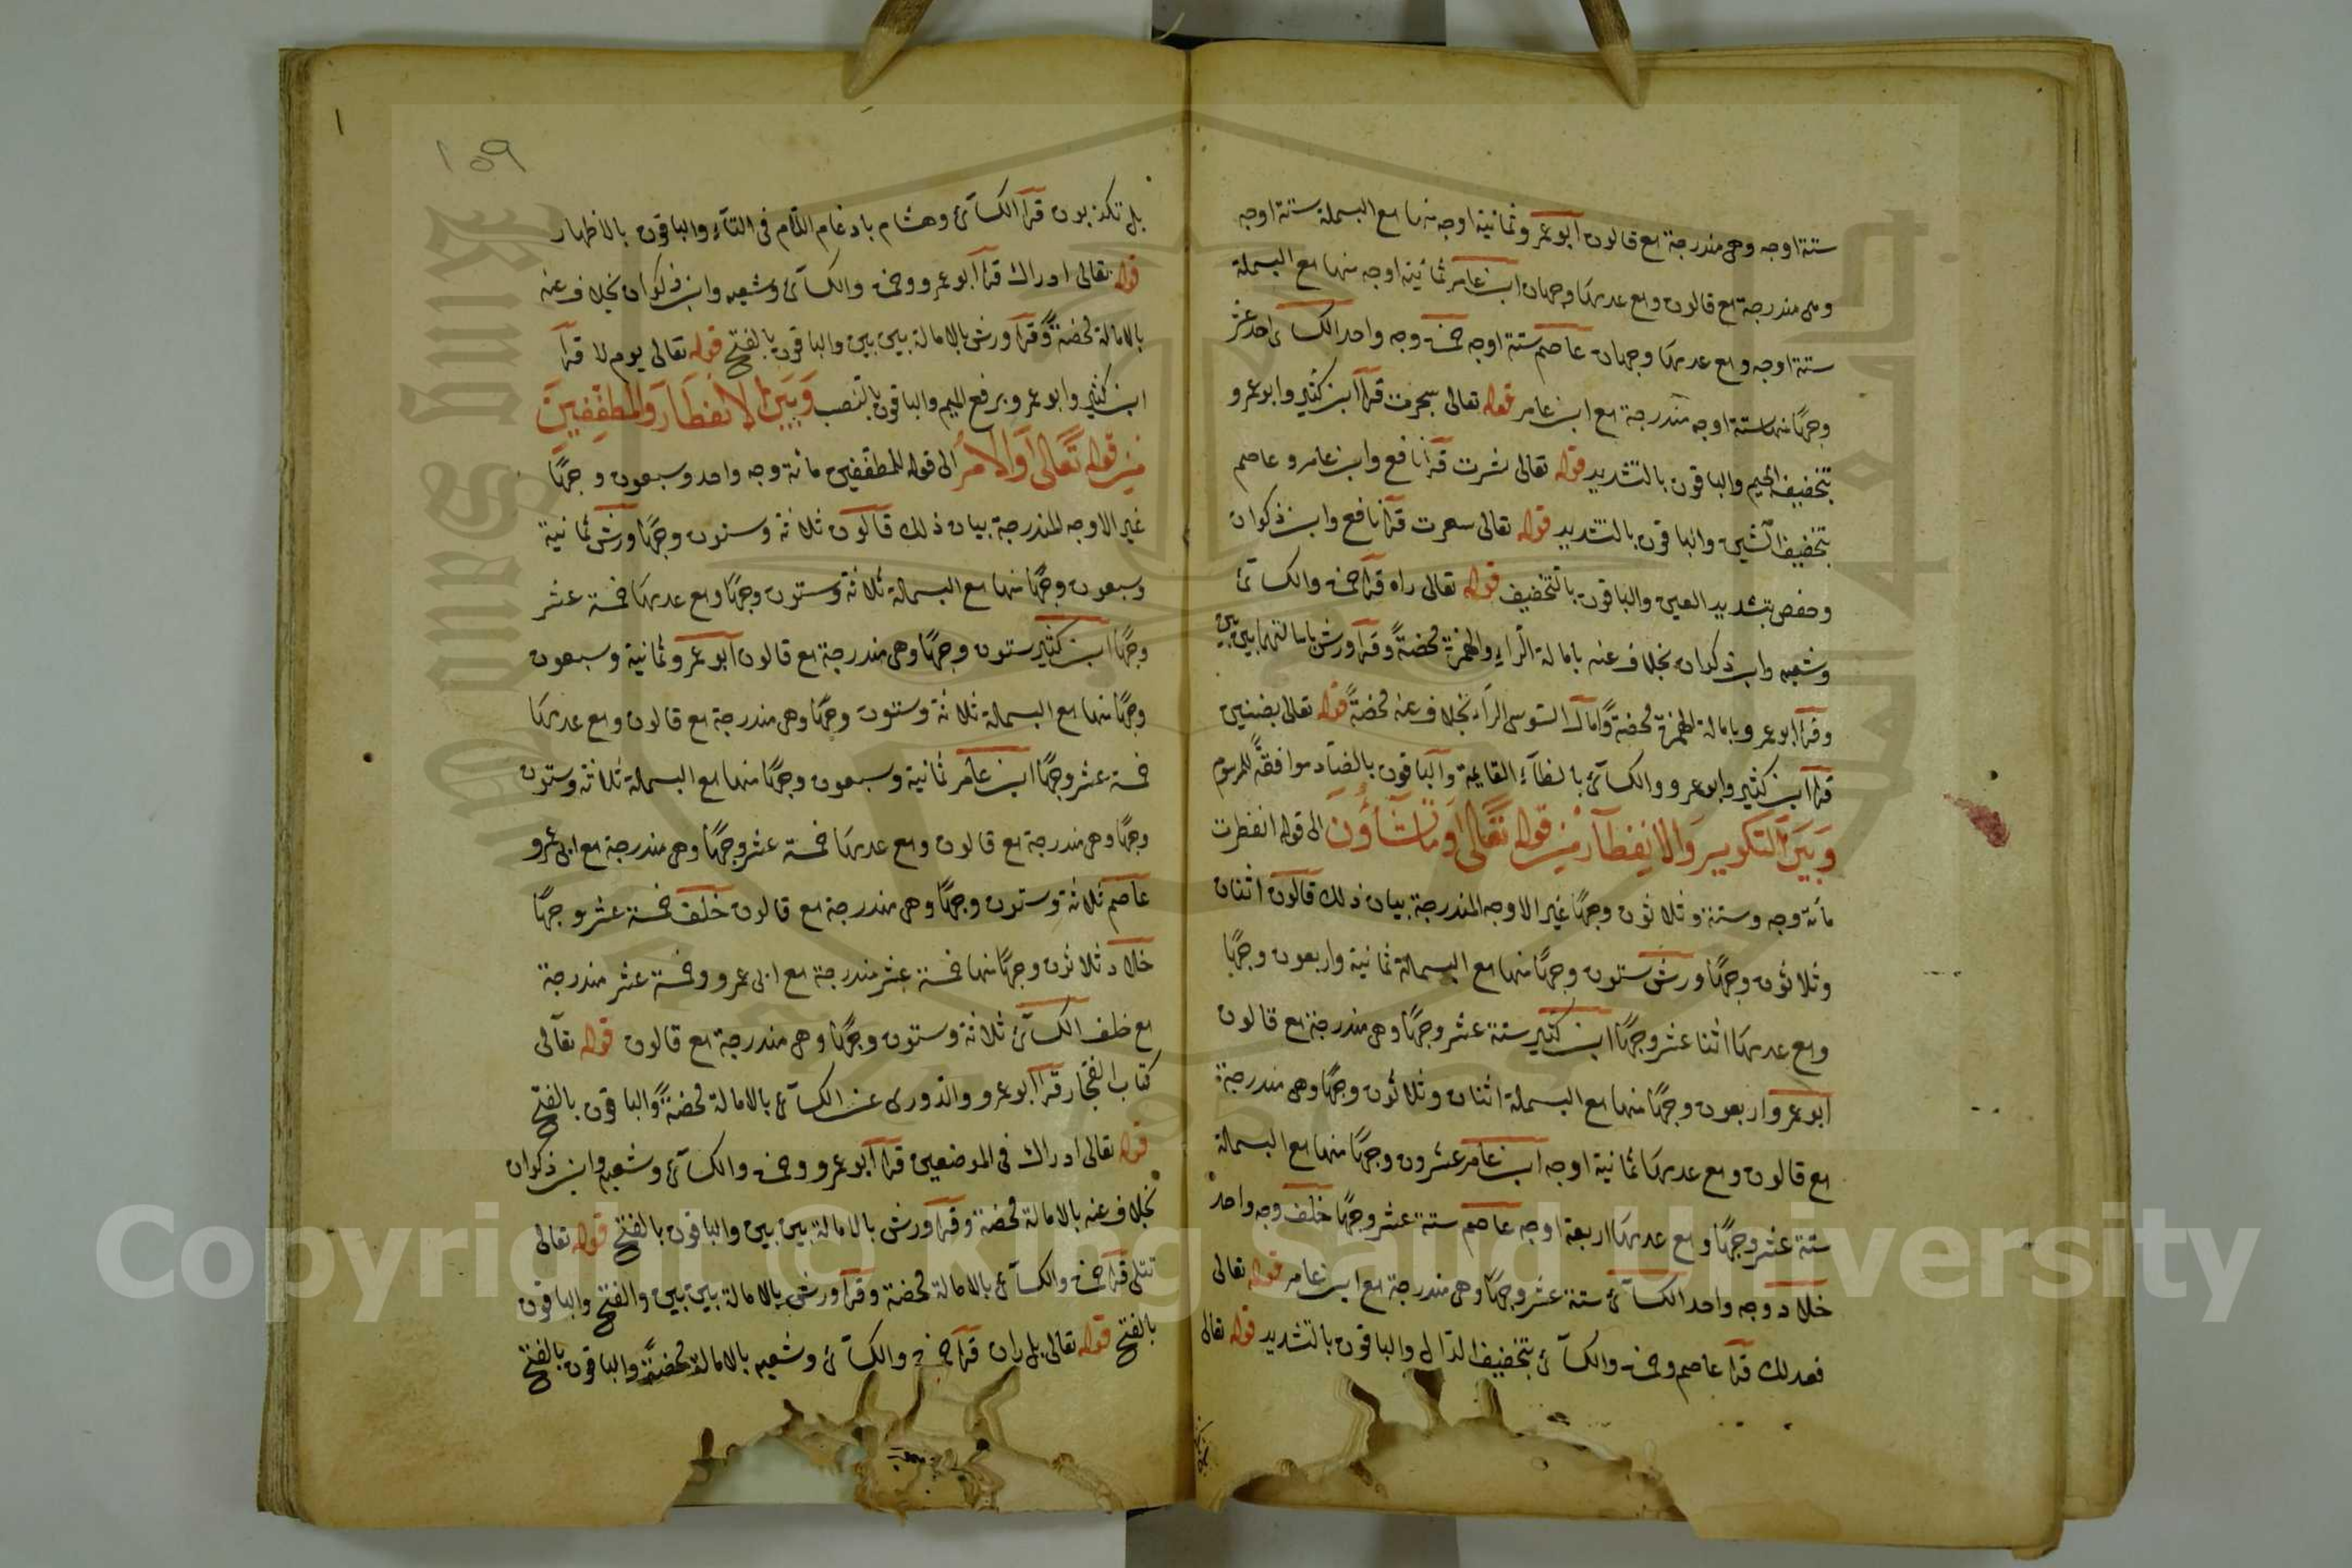 ستة اوجه وهى مندرجة مع قالون ابو عمرو ثمانية اوجه منها مع البسملة ستة اوجه
وهى مندرجة مع قالون ومع عدمها وجهان ابن عامر ثمانية اوجه منها مع البسملة
ستة اوجه ومع عدمها وجهان عاصم ستة اوجه حمزة وجه واحد الكسائى احد عشر
وجها منها ستة اوجه مندرجة مع ابن عامر قوله تعالى سجرت قرا ابن كثير وابو عمرو
بتخفيف الجيم والباقون بالتشديد قوله تعالى نشرت قرا نافع وابن عامر وعاصم
بتخفيف الشين والباقون بالتشديد قوله تعالى سعرت قرا نافع وابن ذكوان
وحفص بتشديد العين والباقون بالتخفيف قوله تعالى راه قرا حمزة والكسائى
وشعبه وابن ذكوان بخلاف عنه بامالة الراء والهمزة محضة وقرا ورش بامالتهما بين بين
وقرا ابو عمرو بامالة الهمزة محضة وامال السوسى الراء بخلاف عنه محضة قوله تعالى بضنين
قرا ابن كثير وابو عمرو والكسائى بالظاء القايمة والباقون بالضاد موافقة للمرسوم
وبين التكوير والانفطار من قوله تعالى وما تشاؤن الى قوله انفطرت
مائة وجه وستة وثلاثون وجها غير الاوجه المندرجة بيان ذلك قالون اثنان
وثلاثون وجها ورش ستون وجها منها مع البسملة ثمانية واربعون وجها
ومع عدمها اثنا عشر وجها ابن كثير ستة عشر وجها وهى مندرجة مع قالون
ابو عمرو اربعون وجها منها مع البسملة اثنان وثلاثون وجها وهى مندرجة
مع قالون ومع عدمها ثمانية اوجه ابن عامر عشرون وجها منها مع البسملة
ستة عشر وجها ومع عدمها اربعة اوجه عاصم ستة عشر وجها خلف وجه واحد
خلاد وجه واحد الكسائى ستة عشر وجها وهى مندرجة مع ابن عامر قوله تعالى
فعدلك قرا عاصم وحمزة والكسائى بتخفيف الدال والباقون بالتشديد قوله تعالى
١٥٩
بل تكذبون قرا الكسائى وهشام بادغام اللام فى التاء والباقون بالاظهار
قوله تعالى ادراك قرا ابو عمرو وحمزة والكسائى وشعبه وابن ذكوان بخلاف عنه
بالامالة محضة وقرا ورش بالامالة بين بين والباقون بالفتح قوله تعالى يوم لا قرا
ابن كثير وابو عمرو برفع الميم والباقون بالنصب وبين الانفطار والمطففين
من قوله تعالى والامر الى قوله للمطففين مائة وجه واحد وسبعون وجها
غير الاوجه المندرجة بيان ذلك قالون ثلاثة وستون وجها ورش ثمانية
وسبعون وجها منها مع البسملة ثلاثة وستون وجها ومع عدمها خمسة عشر
وجها ابن كثير ستون وجها وهى مندرجة مع قالون ابو عمرو ثمانية وسبعون
وجها منها مع البسملة ثلاثة وستون وجها وهى مندرجة مع قالون ومع عدمها
خمسة عشر وجها ابن عامر ثمانية وسبعون وجها منها مع البسملة ثلاثة وستون
وجها وهى مندرجة مع قالون ومع عدمها خمسة عشر وجها وهى مندرجة مع ابى عمرو
عاصم ثلاثة وستون وجها وهى مندرجة مع قالون خلف خمسة عشر وجها
خلاد ثلاثون وجها منها خمسة عشر مندرجة مع ابى عمرو وخمسة عشر مندرجة
مع خلف الكسائى ثلاثة وستون وجها وهى مندرجة مع قالون قوله تعالى
كتاب الفجار قرا ابو عمرو والدورى عن الكسائى بالامالة محضة والباقون بالفتح
قوله تعالى ادراك فى الموضعين قرا ابو عمرو وحمزة والكسائى وشعبه وابن ذكوان
بخلاف عنه بالامالة محضة وقرا ورش بالامالة بين بين والباقون بالفتح قوله تعالى
تتلى قرا حمزة والكسائى بالامالة محضة وقرا ورش بالامالة بين بين والفتح والباقون
بالفتح قوله تعالى بل ران قرا حمزة والكسائى وشعبه بالامالة محضة والباقون بالفتح
Copyright © King Saud University